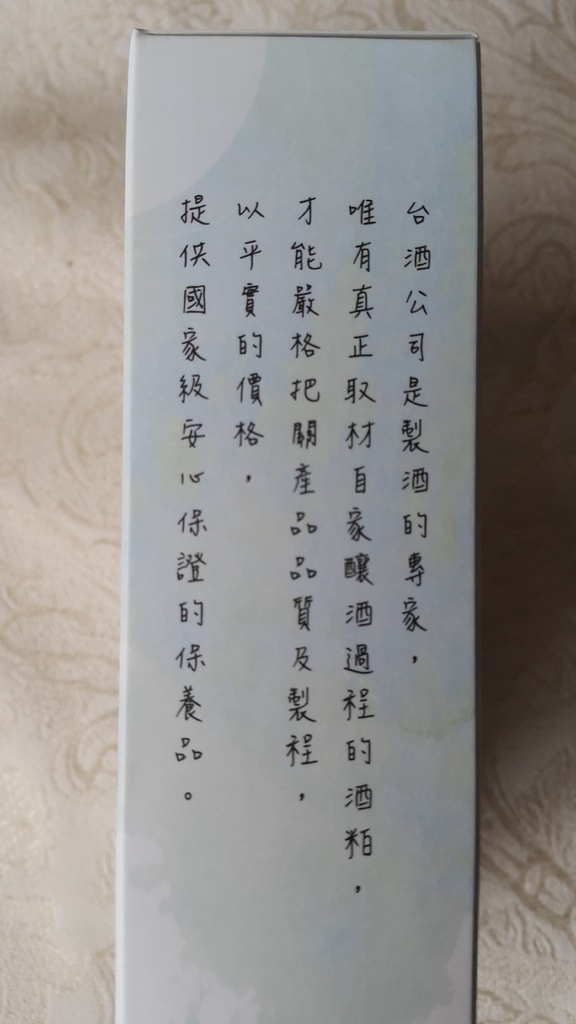 台酒公司是製酒的專家，
唯有真正取材自家釀酒過程的酒粕，
才能嚴格把關產品品質及製程，
以平實的價格，
提供國家級安心保證的保養品。